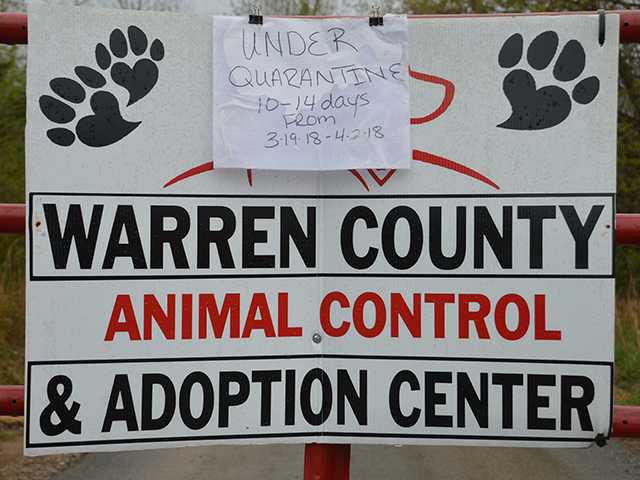 UNDER
QUARANTINE
10-14 days
FROM
3-19-18-4-2-18
WARREN COUNTY
ANIMAL CONTROL
& ADOPTION CENTER